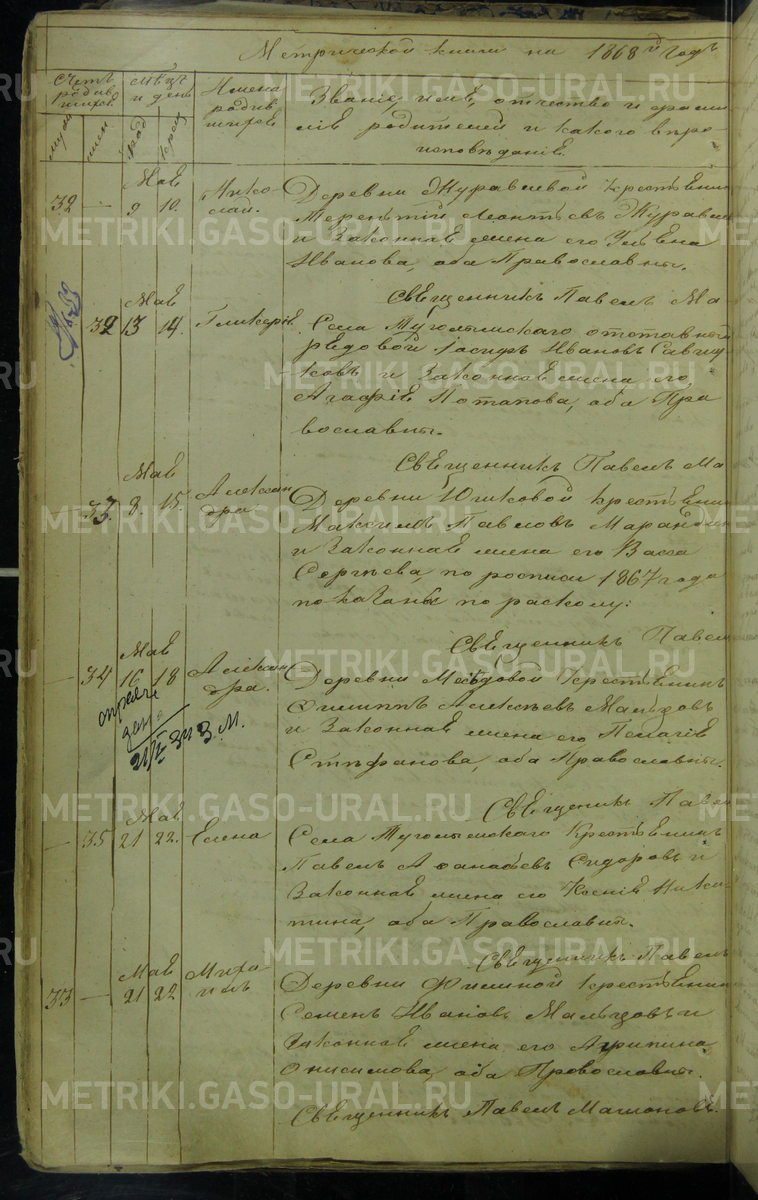 Метрической книги на 1868й годъ
Счетъ родившихся
Мѣсяцъ и день
Имена родившихся
Званіе, имя, отчество и фами
лія родителей и какого вѣро
исповѣданія.
муж жен рож крещ
32 — Мая 9 10. Нико-
лай.
Деревни Журавлевой крестьянинъ
Терентій Леонтьевъ Журавл
и законная жена его Ульяна
Иванова, оба Православны.
Священникъ Павелъ Ма
32 Мая 13 14. Гликерія.
Села Тугулымскаго отставный
рядовой Іосифъ Ивановъ Савиц
ковъ и законная жена его
Агафія Потапова, оба Пра
вославны.
Священникъ Павелъ Ма
— 33. Мая 8. 15. Алексан
дра.
Деревни Юшковой крестьянин
Максимъ Павловъ Марандин
и законная жена его Васса
Сергѣева, по росписи 1867 года
показаны по расколу.
Священникъ Павел
— 34 Мая 16 18 Алексан
дра.
Деревни Мѣдовой крестьянинъ
Филиппъ Алексѣевъ Мальцовъ
и законная жена его Пелагія
Стефанова, оба Православны.
Священникъ Павел
— 35 Мая 21 22. Елена
Села Тугулымскаго крестьянинъ
Павелъ Аѳанасьевъ Сидоровъ и
законная жена его Ксенія Ники
тина, оба Православны.
Священникъ Павелъ
33 — Мая 21 22 Миха
илъ
Деревни Филиной крестьянин
Семенъ Ивановъ Мальцовъ и
законная жена его Агрипина
Онисимова, оба Православны.
Священникъ Павелъ Мамоновъ.
METRIKI.GASO-URAL.RU